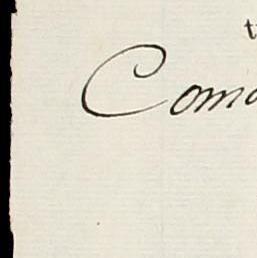 t
Como